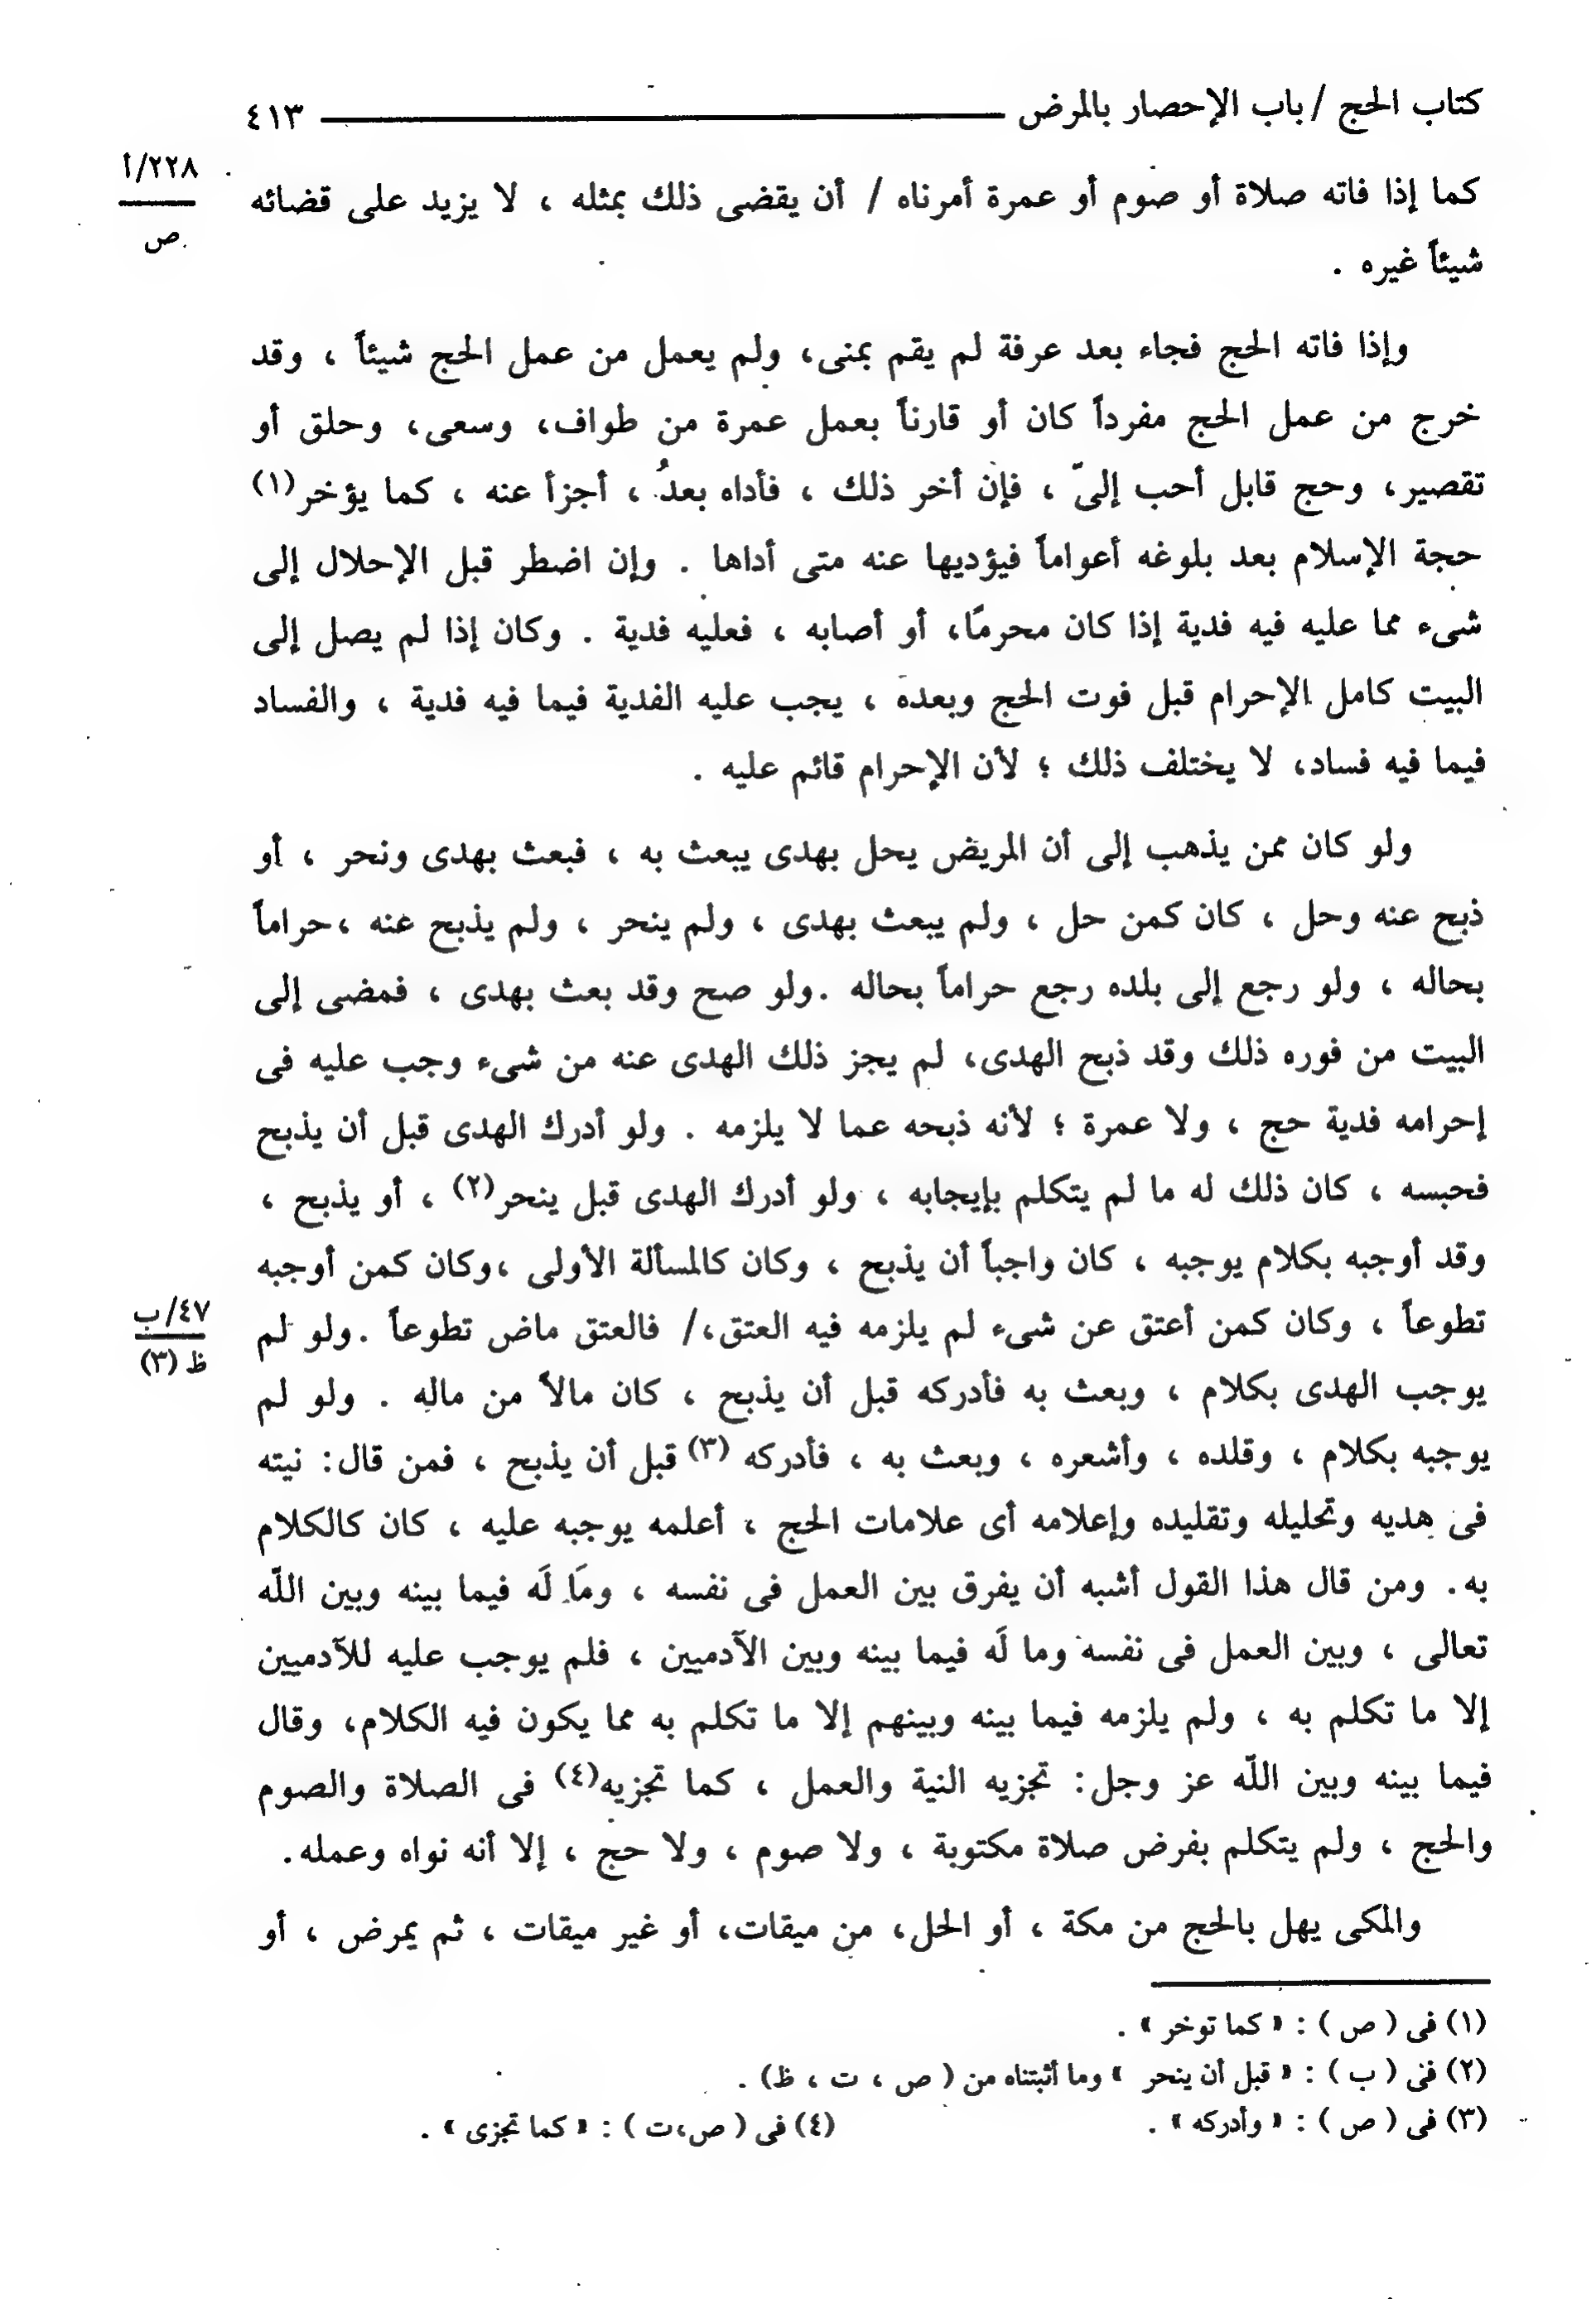 كتاب الحج / باب الإحصار بالمرض ٤١٣
٢٢٨/أ
ص
كما إذا فاته صلاة أو صوم أو عمرة أمرناه / أن يقضى ذلك بمثله ، لا يزيد على قضائه
شيئاً غيره .
وإذا فاته الحج فجاء بعد عرفة لم يقم بمنى، ولم يعمل من عمل الحج شيئاً ، وقد
خرج من عمل الحج مفرداً كان أو قارناً بعمل عمرة من طواف، وسعى، وحلق أو
تقصير، وحج قابل أحب إلىّ ، فإن أخر ذلك ، فأداه بعدُ ، أجزأ عنه ، كما يؤخر(١)
حجة الإسلام بعد بلوغه أعواماً فيؤديها عنه متى أداها . وإن اضطر قبل الإحلال إلى
شىء مما عليه فيه فدية إذا كان محرمًا، أو أصابه ، فعليه فدية . وكان إذا لم يصل إلى
البيت كامل الإحرام قبل فوت الحج وبعده ، يجب عليه الفدية فيما فيه فدية ، والفساد
فيما فيه فساد، لا يختلف ذلك ؛ لأن الإحرام قائم عليه .
ولو كان ممن يذهب إلى أن المريض يحل بهدى يبعث به ، فبعث بهدى ونحر ، أو
ذبح عنه وحل ، كان كمن حل ، ولم يبعث بهدى ، ولم ينحر ، ولم يذبح عنه ،حراماً
بحاله ، ولو رجع إلى بلده رجع حراماً بحاله .ولو صح وقد بعث بهدى ، فمضى إلى
البيت من فوره ذلك وقد ذبح الهدى، لم يجز ذلك الهدى عنه من شىء وجب عليه فى
إحرامه فدية حج ، ولا عمرة ؛ لأنه ذبحه عما لا يلزمه . ولو أدرك الهدى قبل أن يذبح
فحبسه ، كان ذلك له ما لم يتكلم بإيجابه ، ولو أدرك الهدى قبل ينحر(٢) ، أو يذبح ،
وقد أوجبه بكلام يوجبه ، كان واجباً أن يذبح ، وكان كالمسألة الأولى ،وكان كمن أوجبه
تطوعاً ، وكان كمن أعتق عن شىء لم يلزمه فيه العتق،/ فالعتق ماض تطوعاً .ولو لم
٤٧/ب
ظ (٣)
يوجب الهدى بكلام ، وبعث به فأدركه قبل أن يذبح ، كان مالاً من ماله . ولو لم
يوجبه بكلام ، وقلده ، وأشعره ، وبعث به ، فأدركه (٣) قبل أن يذبح ، فمن قال: نيته
فى هديه وتحليله وتقليده وإعلامه أى علامات الحج ، أعلمه يوجبه عليه ، كان كالكلام
به. ومن قال هذا القول أشبه أن يفرق بين العمل فى نفسه ، ومَا لَه فيما بينه وبين اللّه
تعالى ، وبين العمل فى نفسه وما لَه فيما بينه وبين الآدميين ، فلم يوجب عليه للآدميين
إلا ما تكلم به ، ولم يلزمه فيما بينه وبينهم إلا ما تكلم به مما يكون فيه الكلام، وقال
فيما بينه وبين اللّه عز وجل: تجزيه النية والعمل ، كما تجزيه(٤) فى الصلاة والصوم
والحج ، ولم يتكلم بفرض صلاة مكتوبة ، ولا صوم ، ولا حج ، إلا أنه نواه وعمله.
والمكى يهل بالحج من مكة ، أو الحل، من ميقات، أو غير ميقات ، ثم يمرض ، أو
(١) فى ( ص ) : « كما توخر » .
(٢) فى ( ب ) : « قبل أن ينحر » وما أثبتناه من ( ص ، ت ، ظ) .
(٣) فى ( ص ) : « وأدركه » . (٤) فى ( ص،ت ) : « كما تجزى » .